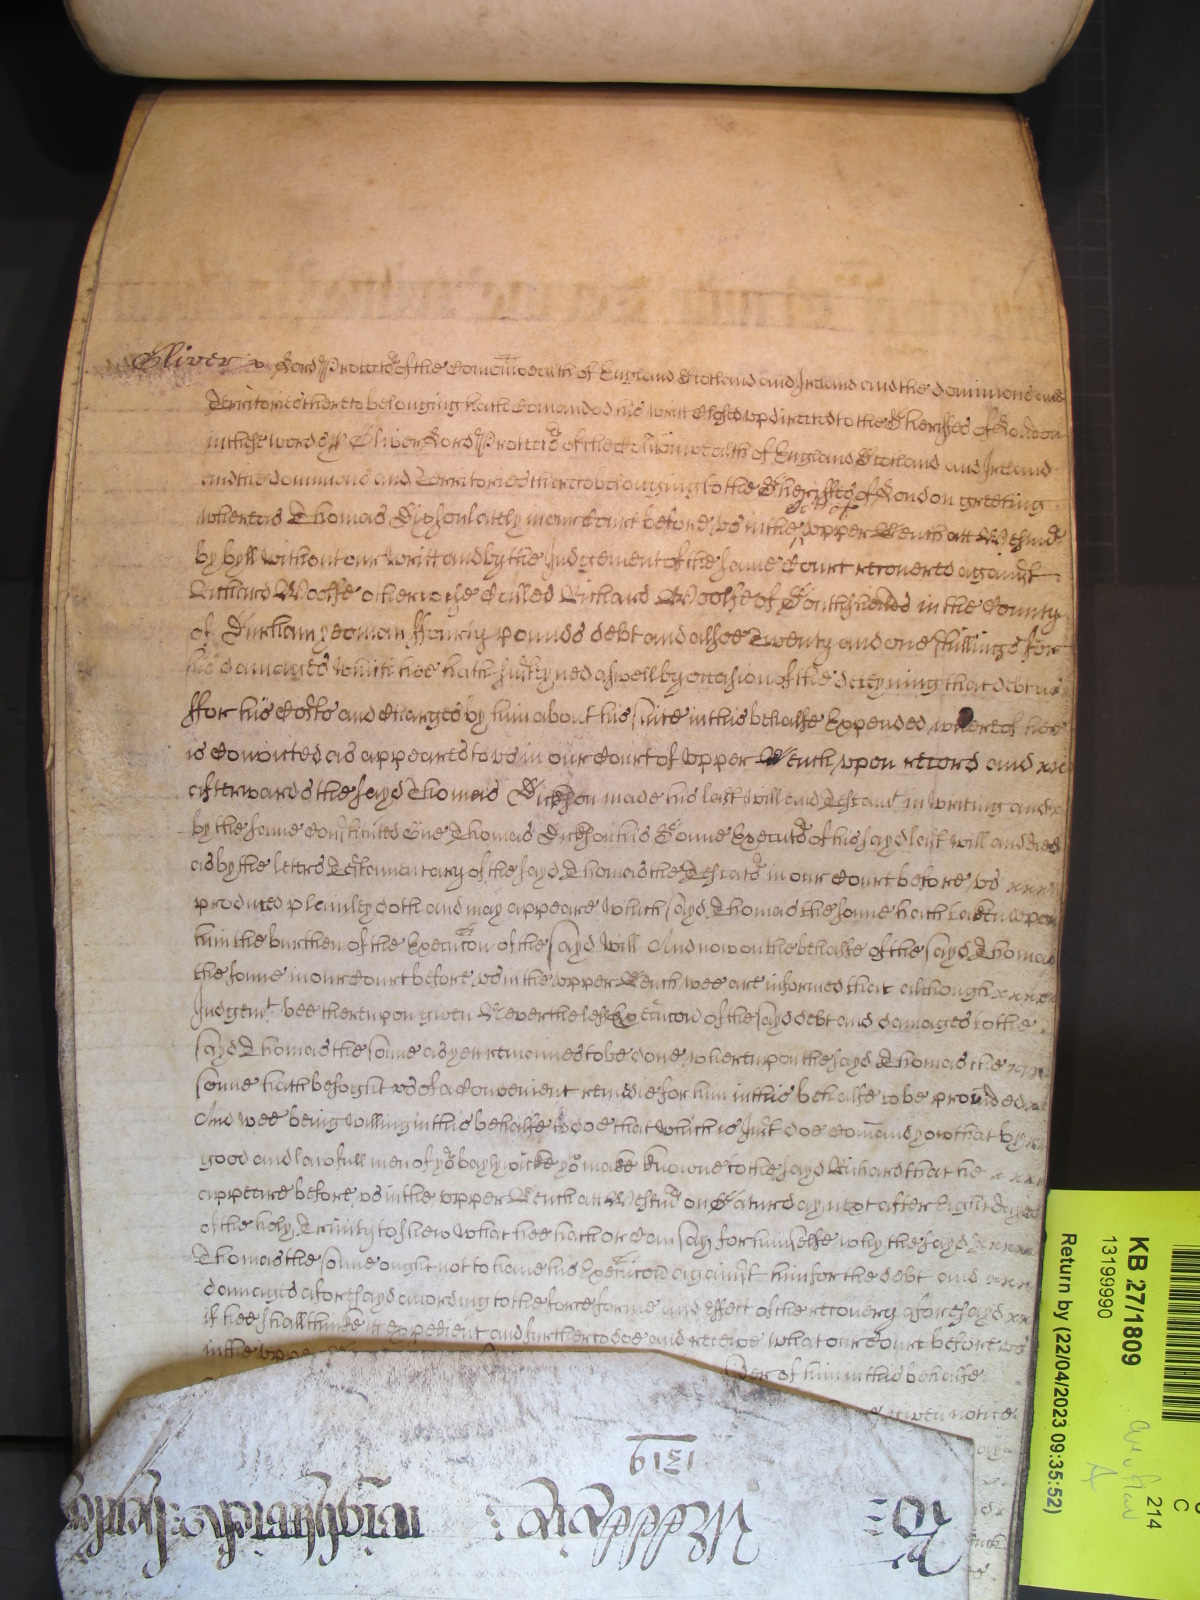 Oliver Lord Protector of the Comonwealth of England Scotland and Ireland and the dominions and
Territories thereto belonging hath Comanded his writt Closed up directed to the Sheriffes of London
in these words Oliver Lord Protector of the Comonwealth of England Scotland and Ireland
and the dominions and Territories thereto belonging to the Sheriffes of London greeting
whereas Thomas lately in our Court before us in the upper Bench att Westmr
by byll without our writt and by the Judgement of the same Court recovered against
Richard Woolfe otherwyse Called Richard Woolfe of in the County
of Durham yeoman ffourty pounds debt and alsoe Twenty and one shillings for
his damages which hee hath susteyned aswell by occasion of the deteyning that debt as
ffor his Costs and Charges by him about his suite in this behalfe Expended whereof hee
is Convicted as appeares to us in our Court of upper Bench upon record and xx
afterwards the sayd Thomas Dickson made his last will and Testamt in writing and
by the same Constituted One Thomas Dickson his Sonne Executor of his sayd last will and died
as by the leters Testamentary of the sayd Thomas the Testator in our Court before us xxx
produced plainley doth and may appeare which sayd Thomas the sonne hath taken upon
him the burthen of the Execucon of the sayd will And now on the behalfe of the sayd Thomas
the sonne in our Court before us in the upper Bench wee are informed that although xxxx
Judgemt bee thereupon given Neverthelesse Execucon of the sayd debt and damages to the
sayd Thomas the sonne as yett remaines to be done whereupon the sayd Thomas the xxx
sonne hath besoght us of a Convenient remedie for him in this behalfe to be provided
And wee being willing in this behalfe to doe that which is Just doe Comand yow that by
good and lawfull men of yor baylywicke yo make knowne to the sayd Richard that he xxx
appeare before us in the upper Bench att Westmr on Saturday next after Eight dayes
of the holy Trinity to shew what hee hath or Can say for himselfe why the sayd xxxx
Thomas the sonne ought not to have his Execucon against him for the debt and xxx
damages aforesayd according to the force forme and effect of the recovery aforesayd xx
if hee shall thinke itt expedient and further to doe and receive what our Court before us
in the upper
of him in this behalfe
given notice
1319
Middlesex
Ro
KB 27/1809
13199990
Return by (22/04/2023 09:35:52)
214
C